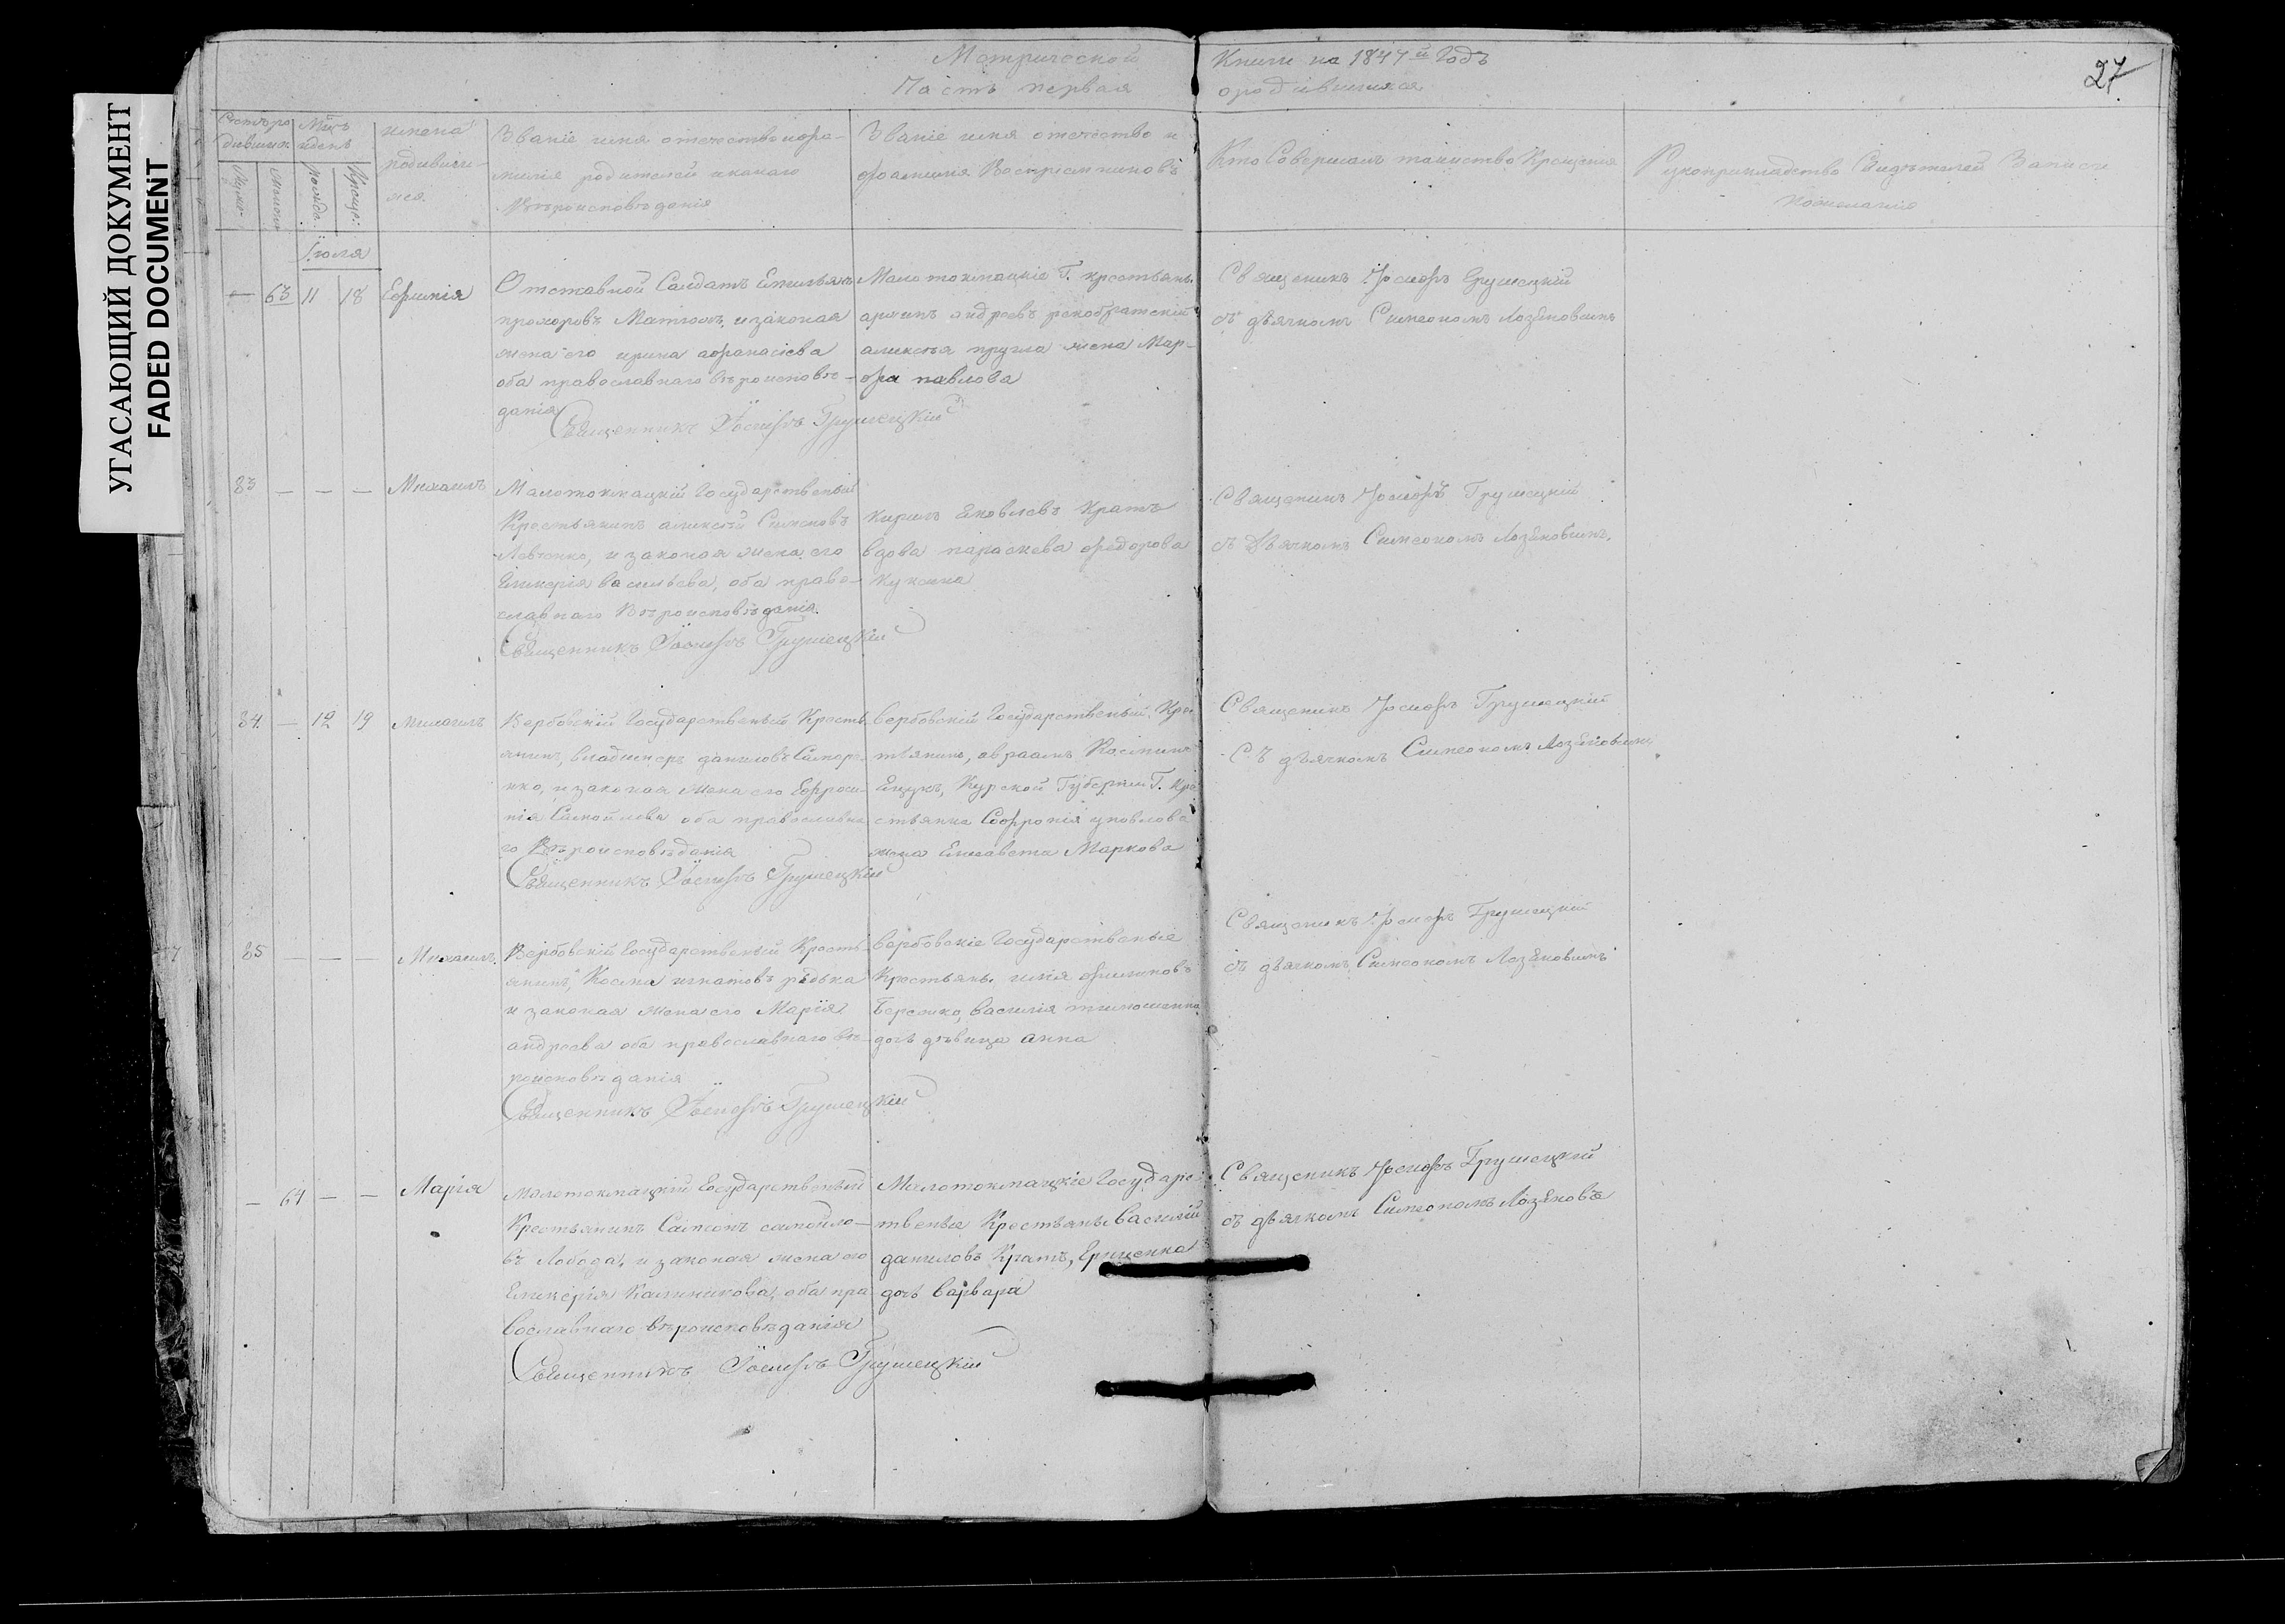 УГАСАЮЩИЙ ДОКУМЕНТ
FADED DOCUMENT
27
Метрической Книги на 1847й Годъ
Часть первая о родившихся
Мцъ
и день
имена
родивши-
хся
Званіе имя отечество и фа-
милія родителей и какаго
Вѣроисповѣданія
Званіе имя отечество и
фамилия Восприемниковъ
Кто Совершалъ таинство Крещения
Рукоприкладство Свидѣтелей Записи
по желанию
Іюля
— 63 11 18 Ефимія
Отставной Салдатъ Емильянъ
прохоровъ и законая
жена его ирина афанасіева
оба православнаго вѣроисповѣ-
данія
Священникъ Іосифъ Грушецкій
Малотокмацкіе Г. крестьяне
жена Мар-
фа павлова
Священикъ Іосифъ Грушецкий
съ дьячкомъ Симеономъ Лозяновымъ
83 — — — Михаилъ
Малотокмацкій Государственый
Крестьянинъ алексѣй Симеоновъ
Левченко, и законая жена его
Гликерія васильева, оба право-
славнаго Вѣроисповѣданія.
Священникъ Іосифъ Грушецкій
Кирилъ Яковлевъ Кратъ
вдова параскева федорова
Священикъ Іосифъ Грушецкій
съ Дьячкомъ Симеономъ Лозяновымъ.
84. — 12 19 Михаилъ
Вербовскій Государственый Кресть-
янинъ, владимеръ даниловъ
нко, и законая жена его Ефроси-
нія Самойлова оба православна
го Вѣроисповѣданія
Священникъ Іосифъ Грушецкій
вербовскій Государственый Крес-
тьянинъ, авраамъ
Курской Губерніи Г. Кре
стьянина Софронія
жена Елисавета Маркова
Священикъ Іосифъ Грушецкій
Съ дьячкомъ Симеономъ Лозяновымъ
85 — — — Михаилъ.
Вербовскій Государственый Кресть-
янинъ, Косма игнатовъ рѣдька
и законая жена его Марія
андреева оба православнаго вѣ-
роисповѣданія
Священникъ Іосифъ Грушецкій
вербовскіе Государственые
Крестьяне, илія филиповъ
василія
дочь дѣвица анна
Священикъ Іосифъ Грушецкій
съ дьячкомъ Симеономъ Лозяновымъ
— 64 — — Марія
Малотокмацкій Государственый
Крестьянинъ Самсонъ самойло-
въ Лобода, и законая жена его
Гликерія Калиникова, оба пра
вославнаго вѣроисповѣданія
Священникъ Іосифъ Грушецкій
Малотокмацкіе Государс
твеные Крестьяне василій
даниловъ Кратъ, Ериценка
дочь варвара
Священикъ Іосифъ Грушецкій
съ дьячкомъ Симеономъ Лозяновъ